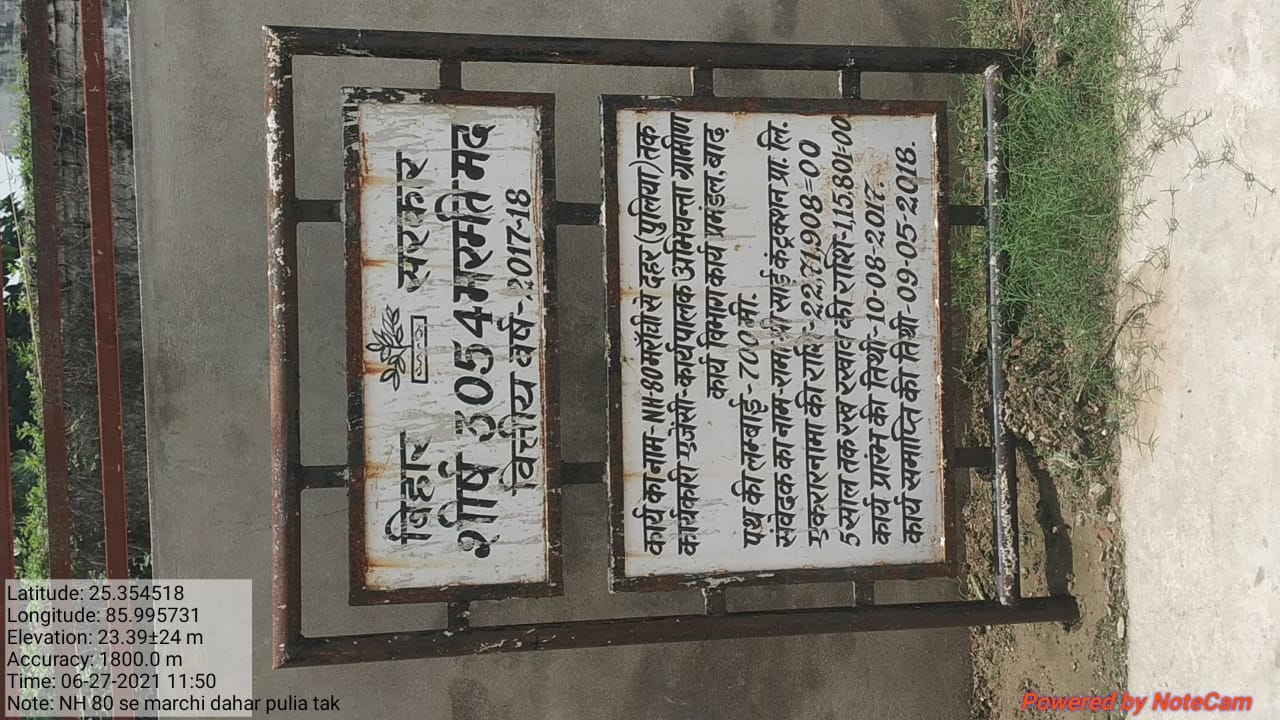 बिहार सरकार
शीर्ष 3054 मरम्मति मद
वित्तीय वर्ष-2017-18
कार्य का नाम-NH80 मराँची से दहर (पुलिया) तक
कार्यकारी एजेंसी-कार्यपालक अभियन्ता ग्रामीण
कार्य विभाग कार्य प्रमंडल, बाढ़
पथ की लम्बाई-700 मी.
संवेदक का नाम-राम श्री साई कंट्रक्शन प्रा. लि.
एकरारनामा की राशि-22,71,908=00
5 साल तक रख रखाव की राशि-1,15,801=00
कार्य प्रारंभ की तिथी-10-08-2017.
कार्य समाप्ति की तिथी-09-05-2018.
Latitude: 25.354518
Longitude: 85.995731
Elevation: 23.39±24 m
Accuracy: 1800.0 m
Time: 06-27-2021 11:50
Note: NH 80 se marchi dahar pulia tak
Powered by NoteCam